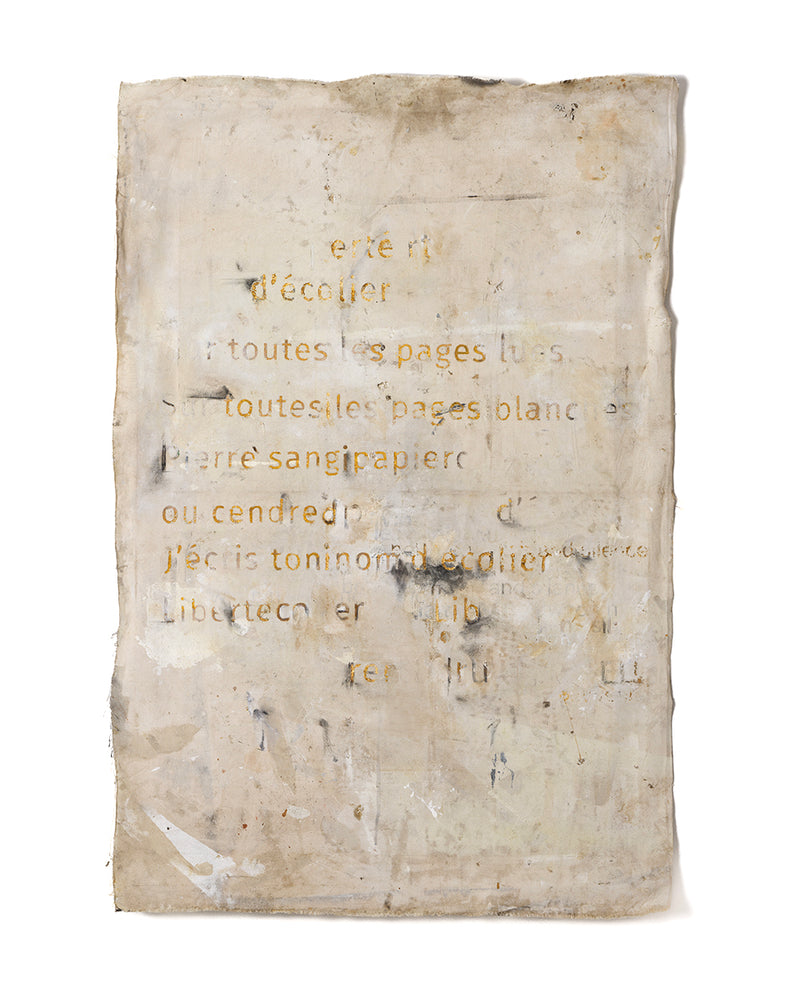 erté rt
d'écolier
r toutes les pages lues
Sur toutes les pages blanches
Pierre sangipapierc
ou cendredp d'
J'écris toninomd'ecolier
Libertecolier Lib
ren dru